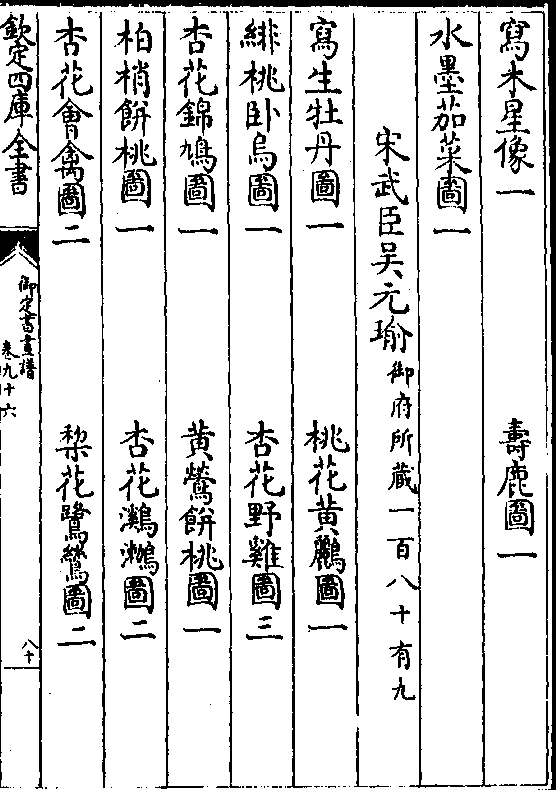 寫木星像一　壽鹿圖一
水墨茄菜圖一
宋武臣吴元瑜御府所藏一百八十有九
寫生牡丹圖一　桃花黄鸝圖一
緋桃卧烏圖一　杏花野雞圖三
杏花錦鳩圖一　黄鶯餅桃圖一
柏梢餅桃圖一　杏花鸂鶒圖二
杏花會禽圖二　棃花鷺鷥圖二
欽定四庫全書　御定書畫譜　卷九十六　八十